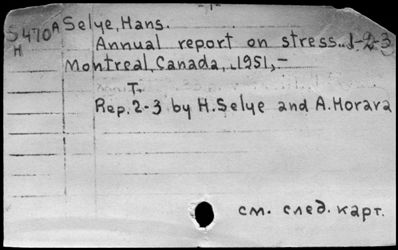 -1-
S470A Selye, Hans.
H Annual report on stress.. 1-2-3
Montreal, Canada, 1951,-
T.
Rep. 2-3 by H. Selye and A. Horava
см. след. карт.